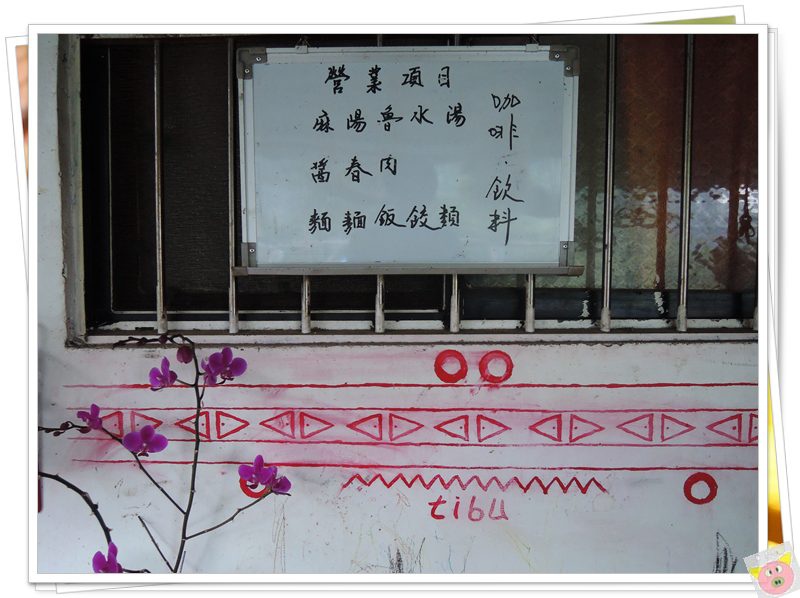 營業項目
麻醬麵
陽春麵
魯肉飯
水餃
湯類
咖啡.飲料
tibu